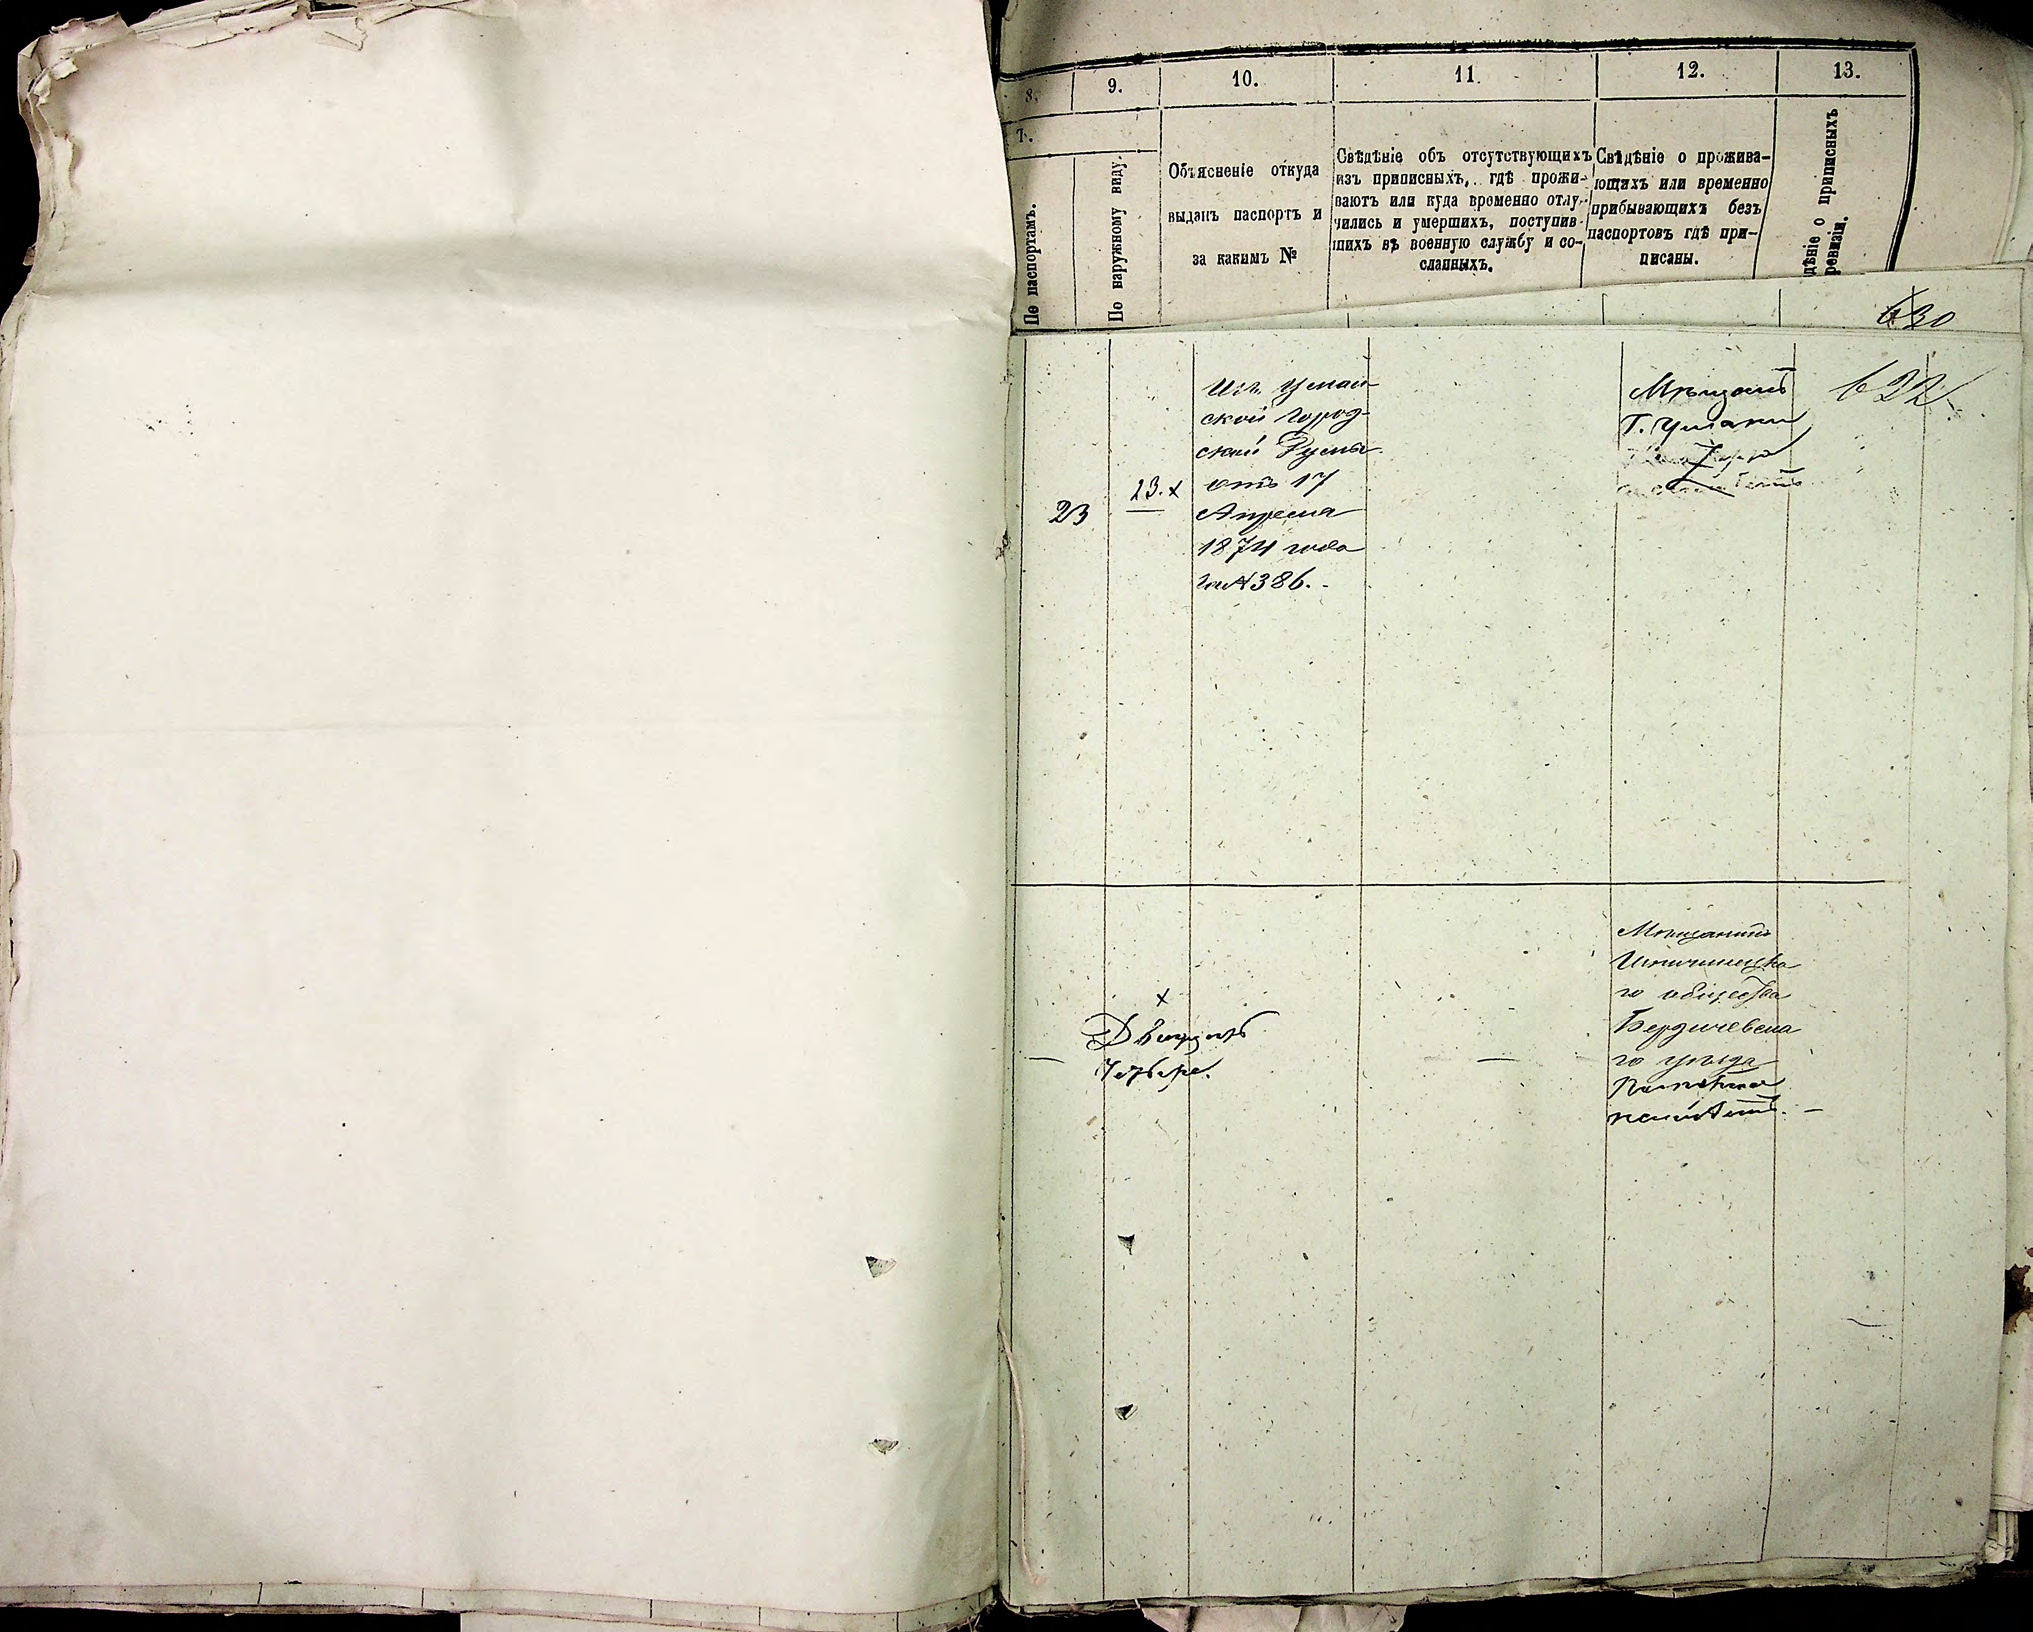 8.
9.
10.
11.
12.
13.
7.
По паспортамъ.
По наружному виду.
Объясненіе откуда
выданъ паспортъ и
за какимъ №
Свѣдѣніе объ отсутствующихъ
изъ приписныхъ, гдѣ прожи-
ваютъ или куда временно отлу-
чились и умершихъ, поступив-
шихъ въ военную службу и со-
сланныхъ.
Свѣдѣніе о прожива-
ющихъ или временно
прибывающихъ безъ
паспортовъ гдѣ при-
писаны.
дѣніе о приписныхъ
ревизіи.
630
632
23
23. x
Изъ Уман
ской город-
ской Думы
отъ 17
Апреля
1874 года
за № 386.-
Мѣщанинъ
Г. Умани
x
Двадцать
Четыре.
Мѣщанинъ
го общества
Бердичевска
го уѣзда